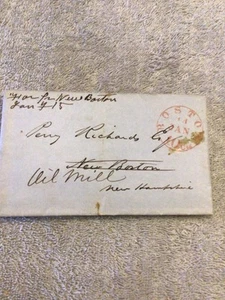 New Boston
Jan 15
BOSTON
JAN
Perry Richards Esq
New Boston
Oil Mill
New Hampshire